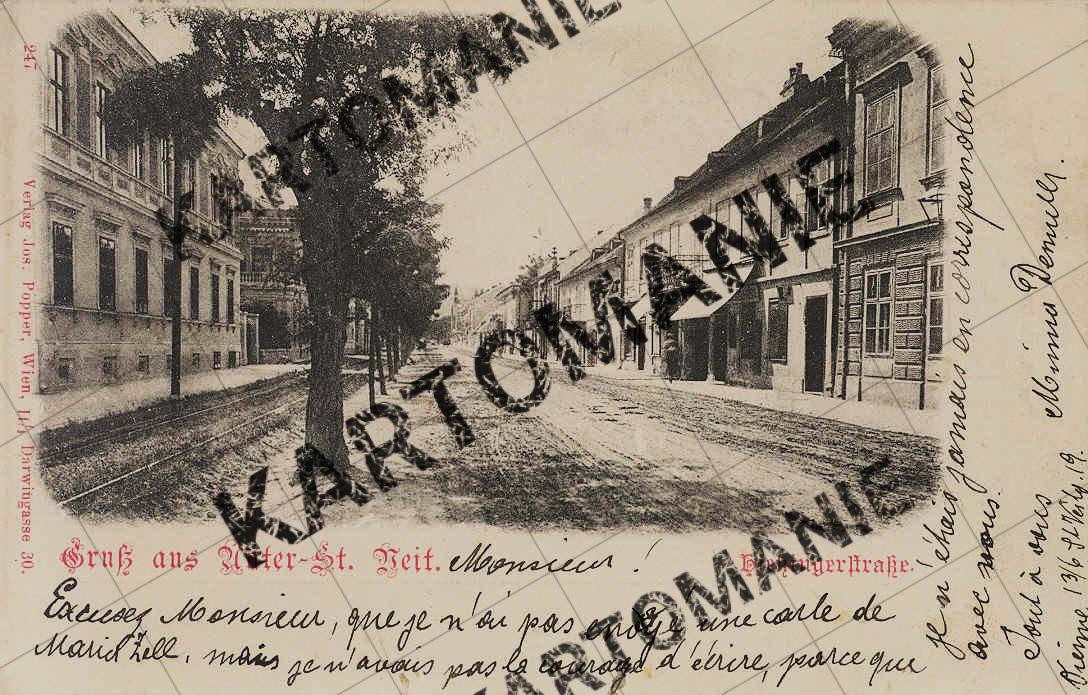 247
Verlag Jos. Popper, Wien, II/1 Darwingasse 30.
Gruß aus Unter-St. Veit.
Hietzingerstraße.
Monsieur!
Excusez Monsieur, que je n'ai pas envoyé une carte de
Maria Zell, mais je n'avais pas le courage d'écrire, parce que
je n'étais jamais en correspondence
avec vous.
Tout à vous
Minna
Vienne
KARTOMANIE
KARTOMANIE
KARTOMANIE
KARTOMANIE
KARTOMANIE
KARTOMANIE